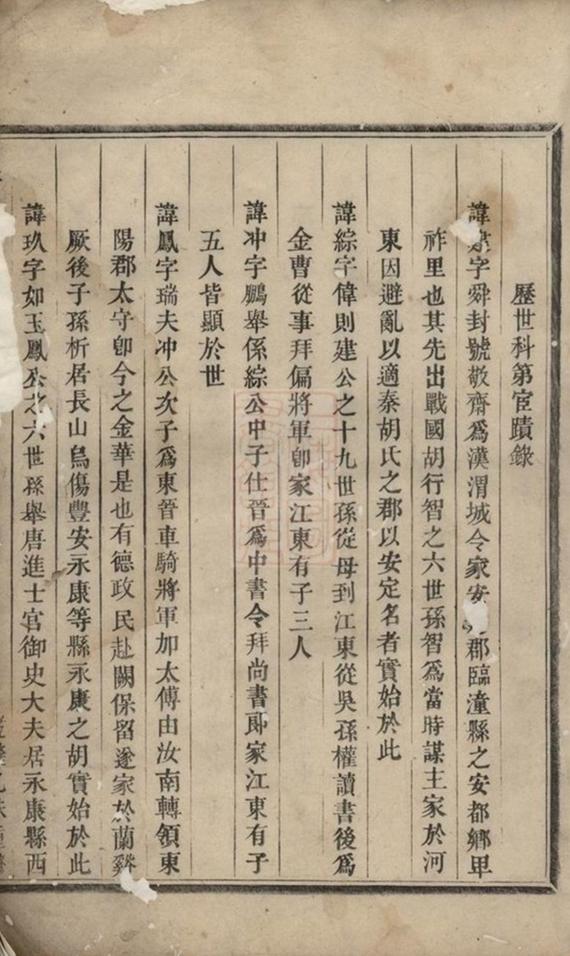 歷世科第宦蹟錄
諱建字舜封號敬齋爲漢渭城令家安定郡臨潼縣之安都鄉甲
祚里也其先出戰國胡行智之六世孫智爲當時謀主家於河
東因避亂以適秦胡氏之郡以安定名者實始於此
諱綜字偉則建公之十九世孫從母到江東從吳孫權讀書後爲
金曹從事拜偏將軍卽家江東有子三人
諱冲字鵬舉係綜公中子仕晉爲中書令拜尚書郎家江東有子
五人皆顯於世
諱鳳字瑞夫冲公次子爲東晉車騎將軍加太傅由汝南轉領東
陽郡太守卽今之金華是也有德政民赴闕保留遂家於蘭谿
厥後子孫析居長山烏傷豐安永康等縣永康之胡實始於此
諱玖字如玉鳳公之六世孫舉唐進士官御史大夫居永康縣西